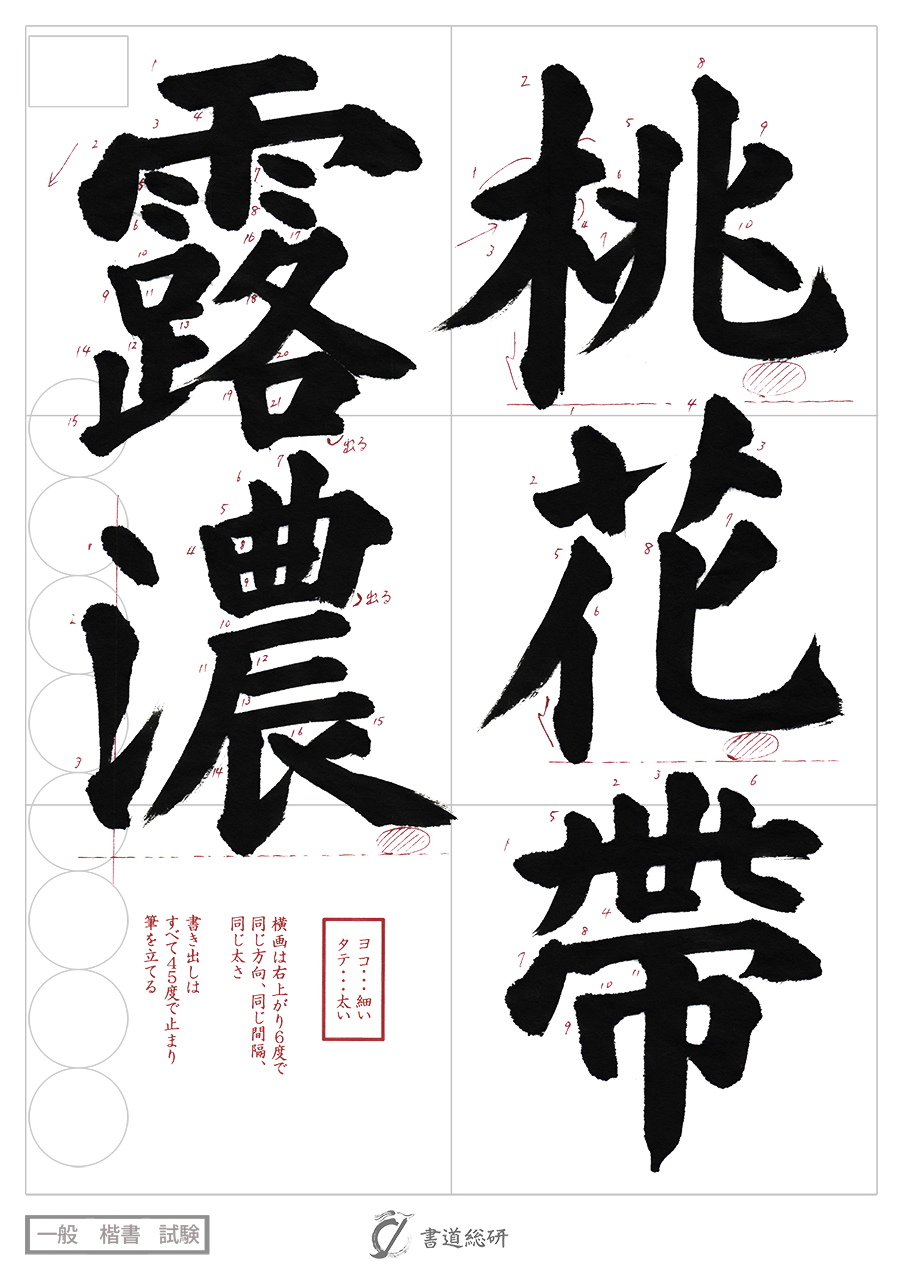 桃花帶
露濃
出る
出る
ヨコ・・・細い
タテ・・・太い
横画は右上がり6度で
同じ方向、同じ間隔、
同じ太さ
書き出しは
すべて45度で止まり
筆を立てる
一般 楷書 試験
書道総研